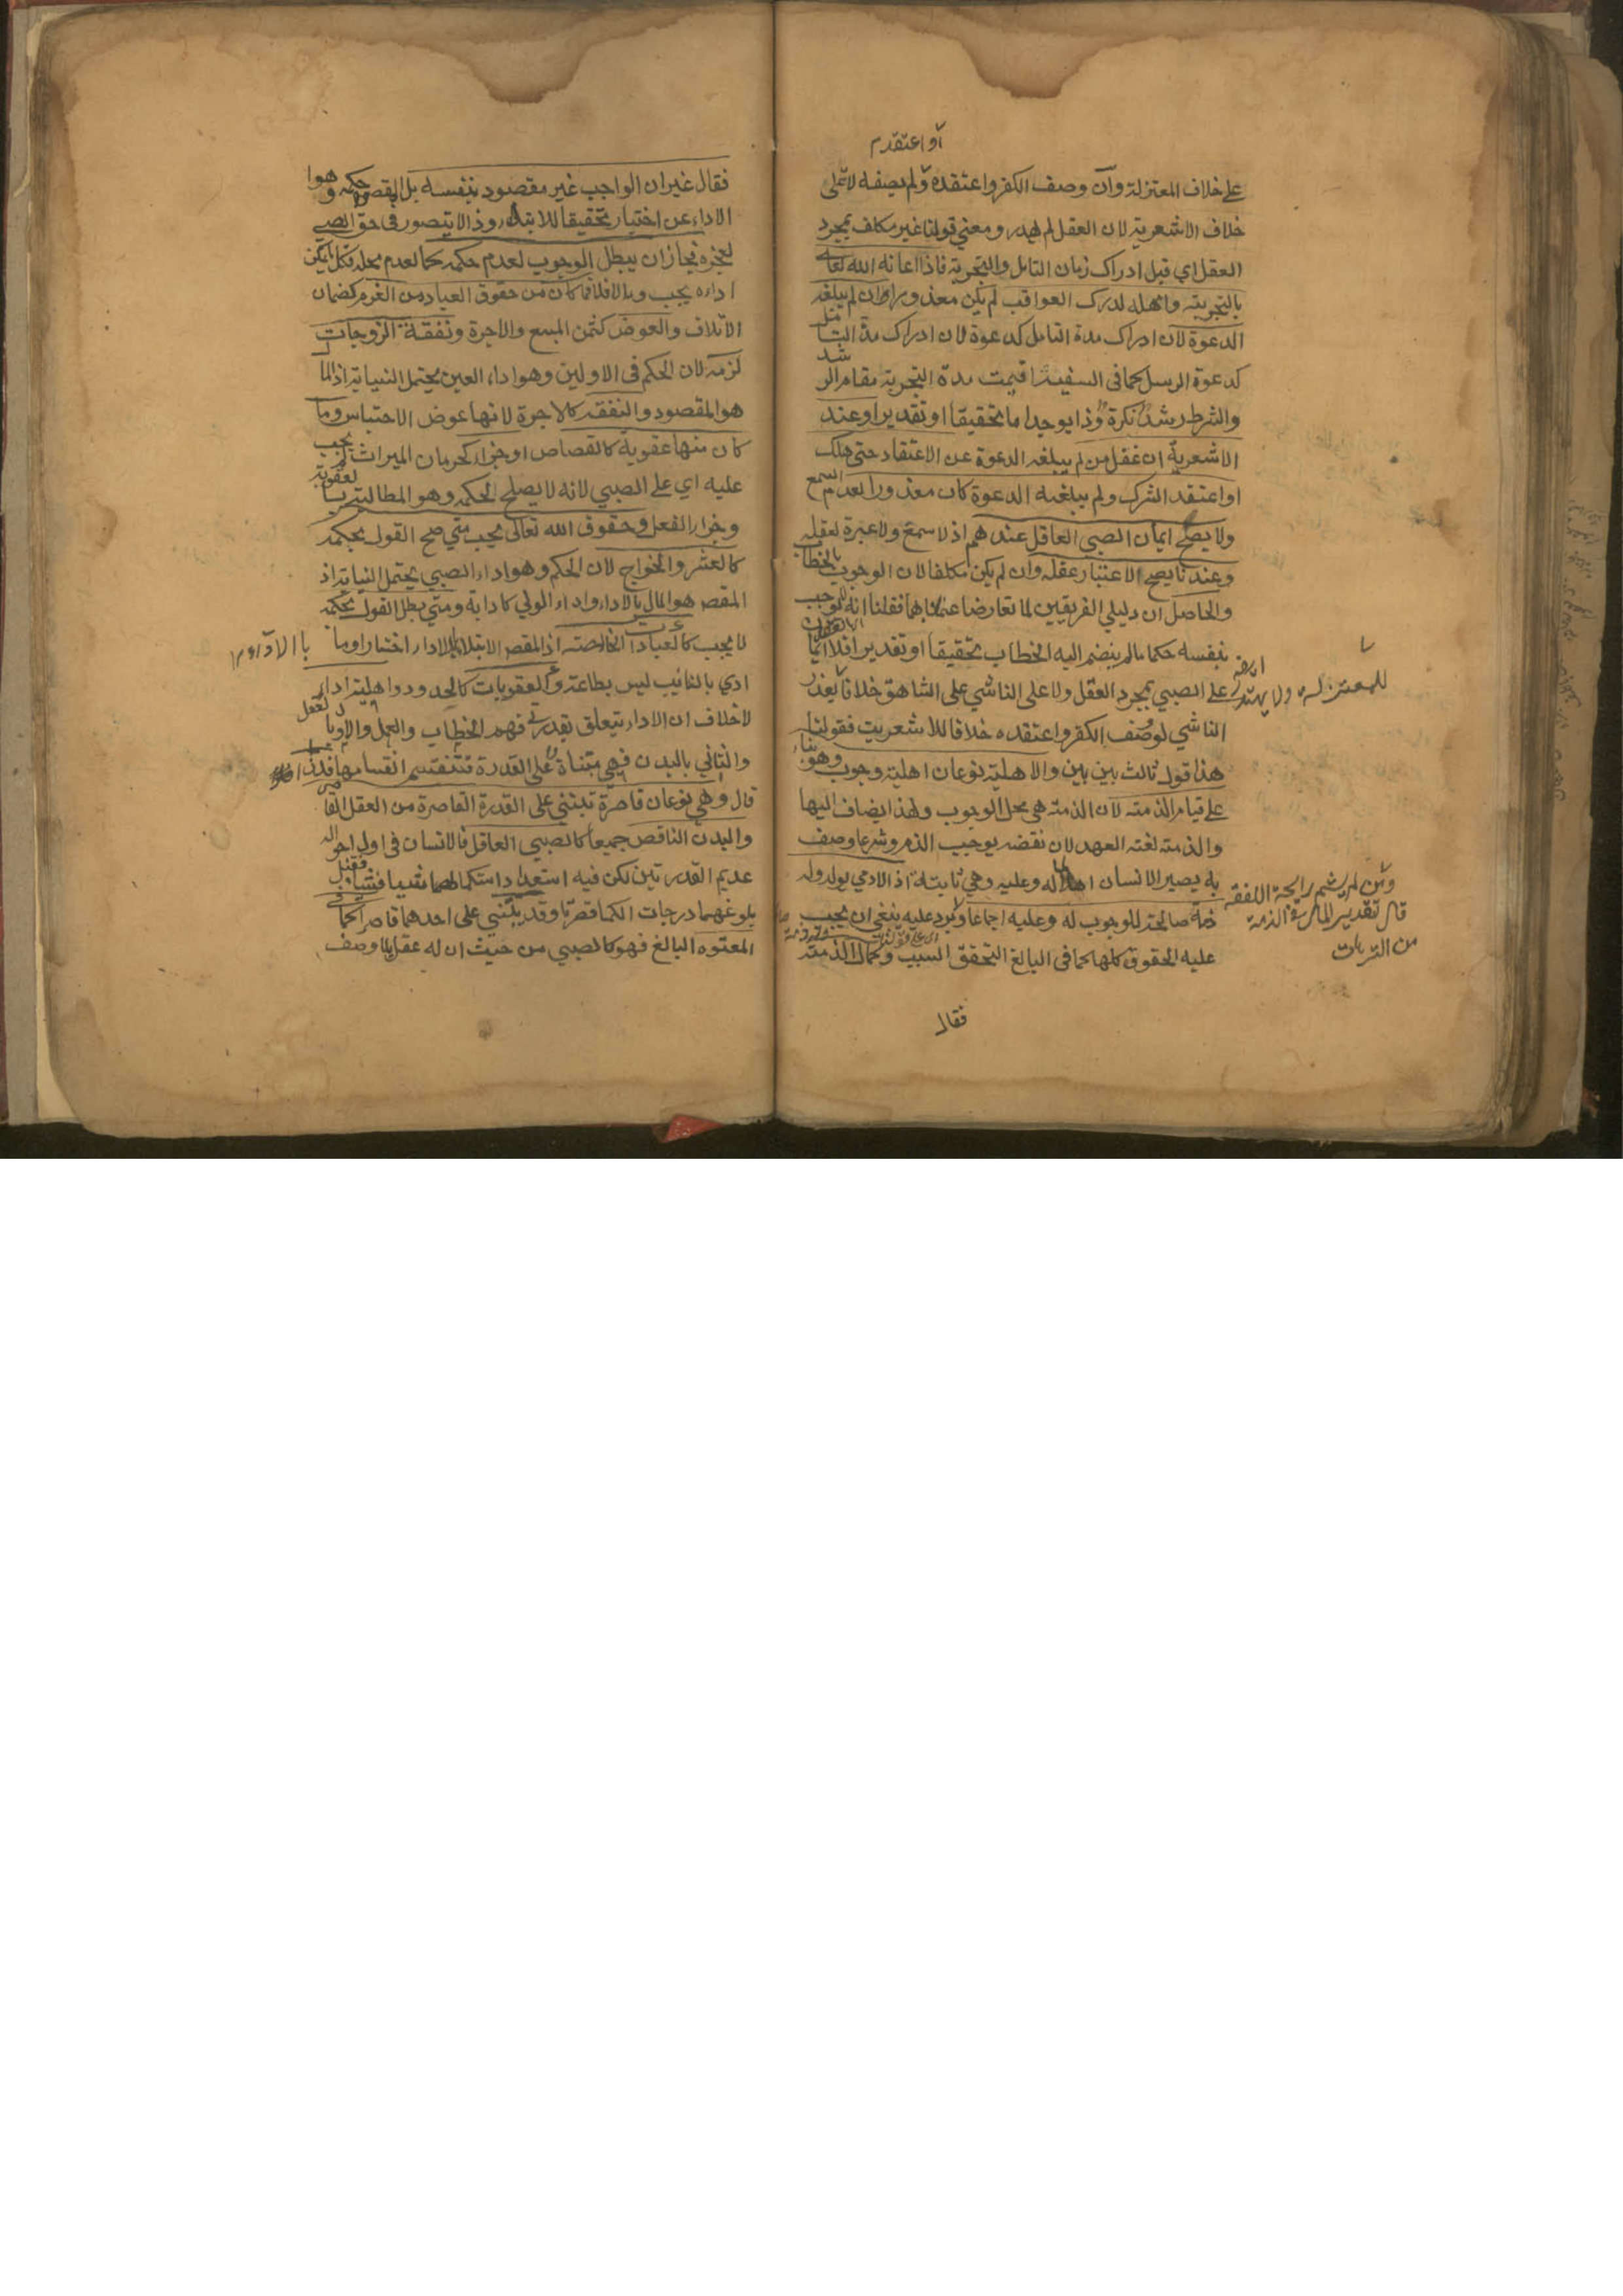 أو اعتقد م
على خلاف المعتزلة وان وصف الكفر واعتقده ولم يصفه لا على
خلاف الاشعرية لان العقل لم يهدر ومعنى قولنا غير مكلف بمجرد
العقل اي قبل ادراك زمان التامل والتجربة فاذا اعانه الله تعالى
بالتجربة وامهله لدرك العواقب لم يكن معذورا وان لم يبلغه
الدعوة لان ادراك مدة التامل كدعوة لان ادراك مدة التامل
كدعوة الرسل كما في السفيه اقيمت مدة التجربة مقام الرشد
والشرط رشد نكرة وذا يوجد اما تحقيقا او تقديرا وعند
الاشعرية ان غفل من لم يبلغه الدعوة عن الاعتقاد حتى هلك
او اعتقد الشرك ولم يبلغه الدعوة كان معذورا لعدم السمع
ولا يصح ايمان الصبي العاقل عندهم اذ لا سمع ولا عبرة لعقله
وعندنا يصح لاعتبار عقله وان لم يكن مكلفا لان الوجوب بالخطاب
والحاصل ان دليلي الفريقين لما تعارضا عملنا بهما فقلنا انه لا يوجب
بنفسه حكما ما لم ينضم اليه الخطاب تحقيقا او تقديرا فلا ايمان
على الصبي بمجرد العقل ولا على الناشي على الشاهق خلافا يعذر
للمعتزلة ولا يهدر
الناشي لو وصف الكفر واعتقده خلافا للاشعرية فقولنا
هذا قول ثالث بين بين والاهلية نوعان اهلية وجوب وهو بناء
على قيام الذمة لان الذمة هي محل الوجوب ولهذا يضاف اليها
والذمة لغة العهد لان نقضه يوجب الذم وشرعا وصف
به يصير الانسان اهلا له وعليه وهي ثابتة اذ الادمي يولد وله
ذمة صالحة للوجوب له وعليه اجماعا ويرد عليه ينبغي ان يجب
عليه الحقوق كلها كما في البالغ لتحقق السبب وكمال الذمة
ومن لم يشم رايحة الفقه
قال تقدير المال في الذمة
من الترهات
فقال
فقال غير ان الواجب غير مقصود بنفسه بل المقصود حكمه وهو
الاداء عن اختيار تحقيقا للابتلاء وذا لا يتصور في حق الصبي
لعجزه فجاز ان يبطل الوجوب لعدم حكمه كما لعدم محله فكل ما يمكن
اداءه يجب وما لا فلا فما كان من حقوق العباد من الغرم كضمان
الاتلاف والعوض كثمن المبيع والاجرة ونفقة الزوجات
لزمه لان الحكم في الاولين وهو اداء العين يحتمل النيابة اذ المال
هو المقصود والنفقه كالاجرة لانها عوض الاحتباس وما
كان منها عقوبة كالقصاص او جزاء كحرمان الميراث لم يجب
عليه اي على الصبي لانه لا يصلح لحكمه وهو المطالبة بالعقوبة
وجزاء الفعل وحقوق الله تعالى يجب متى صح القول بحكمه
كالعشر والخراج لان الحكم وهو اداء الصبي يحتمل النيابة اذ
المقصد هو المال بالاداء واداء الولي كادايه ومتى بطل القول بحكمه
لا يجب كالعبادات الخالصة اذ المقصد الابتلاء بالاداء اختيارا وما
ادي بالنائب ليس بطاعة والعقوبات كالحدود واهلية اداء
لا خلاف ان الاداء يتعلق بقدرتي فهم الخطاب والعمل والاولى بالعقل
والثاني بالبدن فهي مبتناة على القدرة فتنقسم انقسامها فلذا
قال وهي نوعان قاصرة تبتني على القدرة القاصرة من العقل القاصر
والبدن الناقص جميعا كالصبي العاقل فالانسان في اول احواله
عديم القدرتين لكن فيه استعدادا ستكمالهما شيئا فشيئا فقبل
بلوغهما درجات الكمال قصرتا وقد يبتني على احدهما قاصرا كما في
المعتوه البالغ فهو كالصبي من حيث ان له عقل بلا وصف